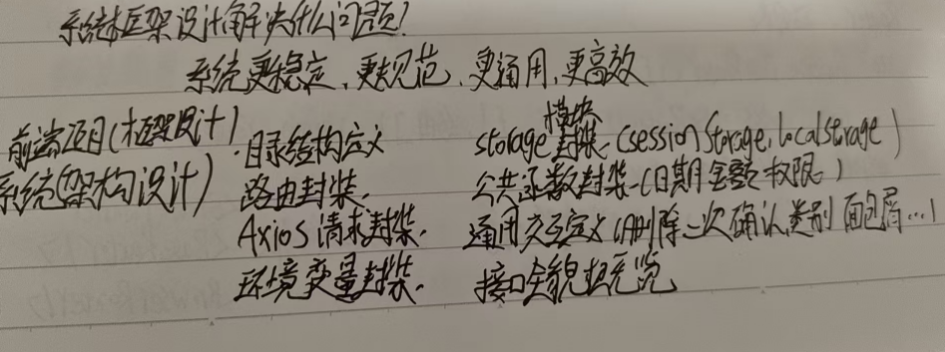 系统框架设计解决什么问题?
系统更稳定、更规范、更通用、更高效
前端项目(框架设计)
系统(架构设计)
目录结构定义
路由封装.
Axios 请求封装.
环境变量封装.
storage模块封装-(sessionStorage, localstorage)
公共函数封装-(日期 金额 权限)
通用交互定义(删除二次确认, 类别 面包屑...)
接口全貌概览